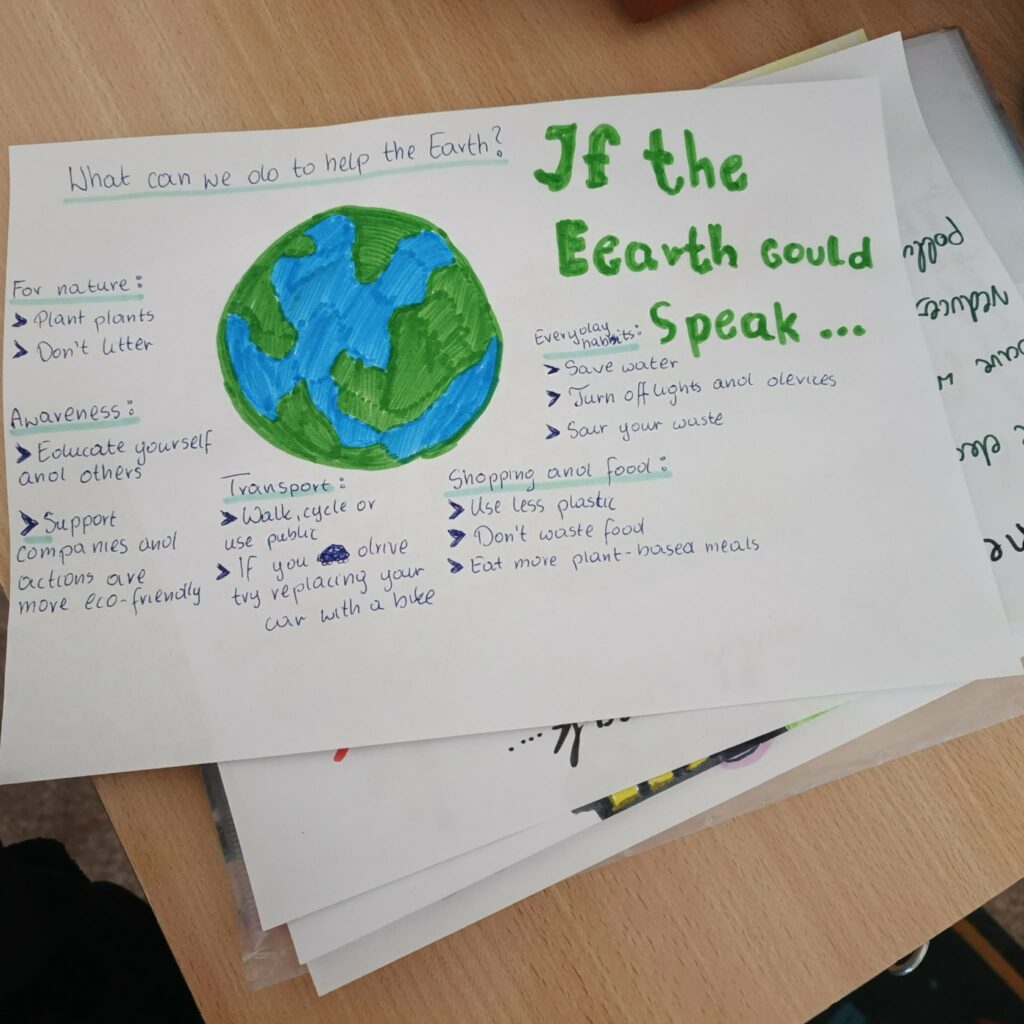 What can we do to help the Earth?
If the
Eearth could
Speak ...
For nature:
➤ Plant plants
➤ Don't litter
Awareness:
➤ Educate yourself
and others
➤ Support
companies and
actions are
more eco-friendly
Transport:
➤ Walk, cycle or
use public
➤ If you drive
try replacing your
car with a bike
Everyday
habits:
➤ Save water
➤ Turn off lights and devices
➤ Sour your waste
Shopping and food:
➤ Use less plastic
➤ Don't waste food
➤ Eat more plant-based meals
pollu
reduces